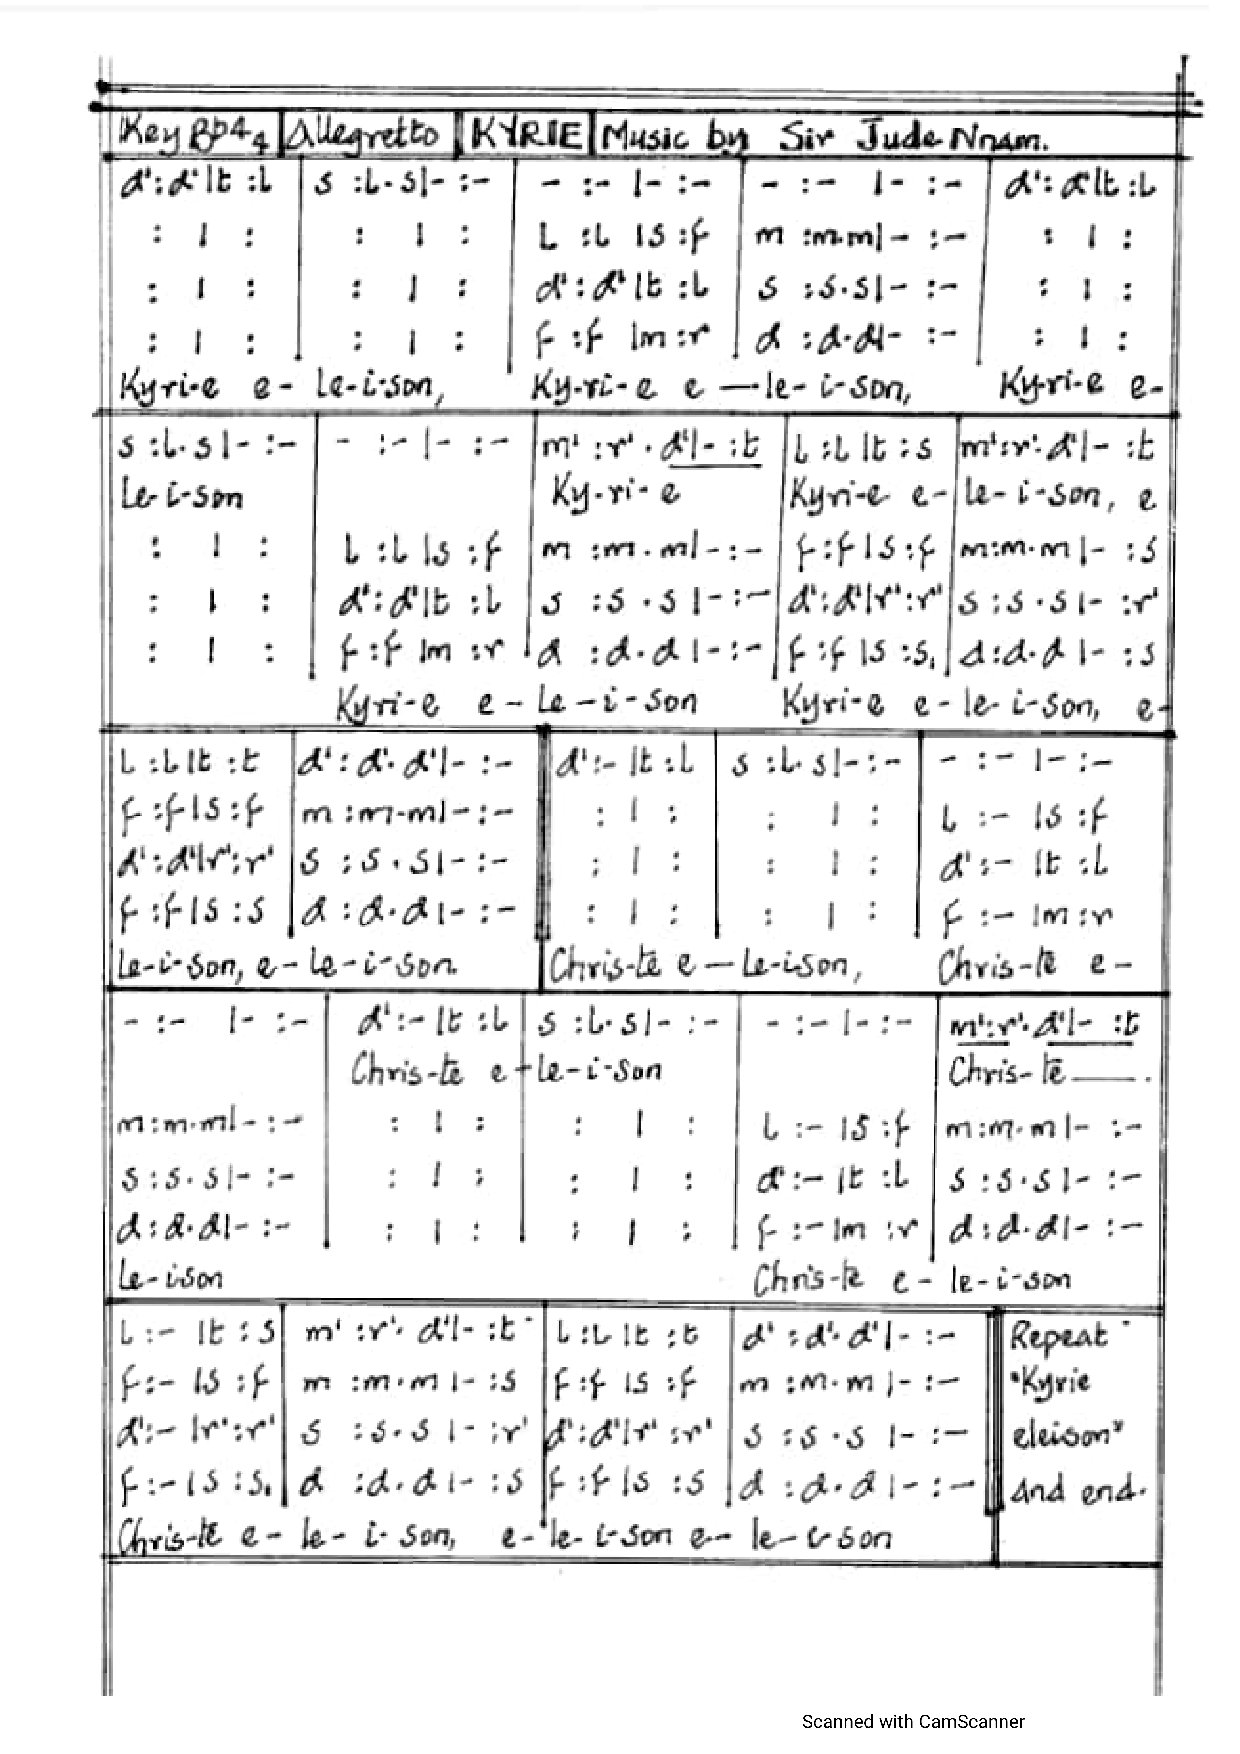 Key Bb 4/4 Allegretto KYRIE Music by Sir Jude Nnam.
d':d'|t :l | s :l.s|- :- | - :- |- :- | - :- |- :- | d':d'|t :l
: | : | : | : | l :l |s :f | m :m.m|- :- | : | :
: | : | : | : | d':d'|t :l | s :s.s|- :- | : | :
: | : | : | : | f :f |m :r | d :d.d|- :- | : | :
Kyri-e e- le-i-son, Ky-ri-e e — le-i-son, Ky-ri-e e-
s :l.s|- :- | - :- |- :- | m':r'.d'|- :t | l :l |t :s | m':r'.d'|- :t
Le-i-son Ky-ri-e Kyri-e e- le-i-son, e
: | : | l :l |s :f | m :m.m|- :- | f :f |s :f | m:m.m|- :s
: | : | d':d'|t :l | s :s.s|- :- | d':d'|r':r' | s :s.s|- :r'
: | : | f :f |m :r | d :d.d|- :- | f :f |s :s, | d:d.d|- :s
Kyri-e e-le-i-son Kyri-e e-le-i-son, e-
l :l |t :t | d':d'.d'|- :- || d':- |t :l | s :l.s|- :- | - :- |- :-
f :f |s :f | m :m.m|- :- || : | : | : | : | l :- |s :f
d':d'|r':r' | s :s.s|- :- || : | : | : | : | d':- |t :l
f :f |s :s | d :d.d|- :- || : | : | : | : | f :- |m :r
le-i-son, e-le-i-son. Chris-te e — le-i-son, Chris-te e-
- :- |- :- | d':- |t :l | s :l.s|- :- | - :- |- :- | m':r'.d'|- :t
Chris-te e-le-i-son Chris-te ——.
m:m.m|- :- | : | : | : | : | l :- |s :f | m:m.m|- :-
s :s.s|- :- | : | : | : | : | d':- |t :l | s :s.s|- :-
d :d.d|- :- | : | : | : | : | f :- |m :r | d:d.d|- :-
le-ison Chris-te e-le-i-son
l :- |t :s | m':r'.d'|- :t | l :l |t :t | d':d'.d'|- :- || Repeat
f :- |s :f | m :m.m|- :s | f :f |s :f | m :m.m|- :- || "Kyrie
d':- |r':r' | s :s.s|- :r' | d':d'|r':r' | s :s.s|- :- || eleison"
f :- |s :s, | d :d.d|- :s | f :f |s :s | d :d.d|- :- || And end.
Chris-te e-le-i-son, e-le-i-son e-le-i-son
Scanned with CamScanner